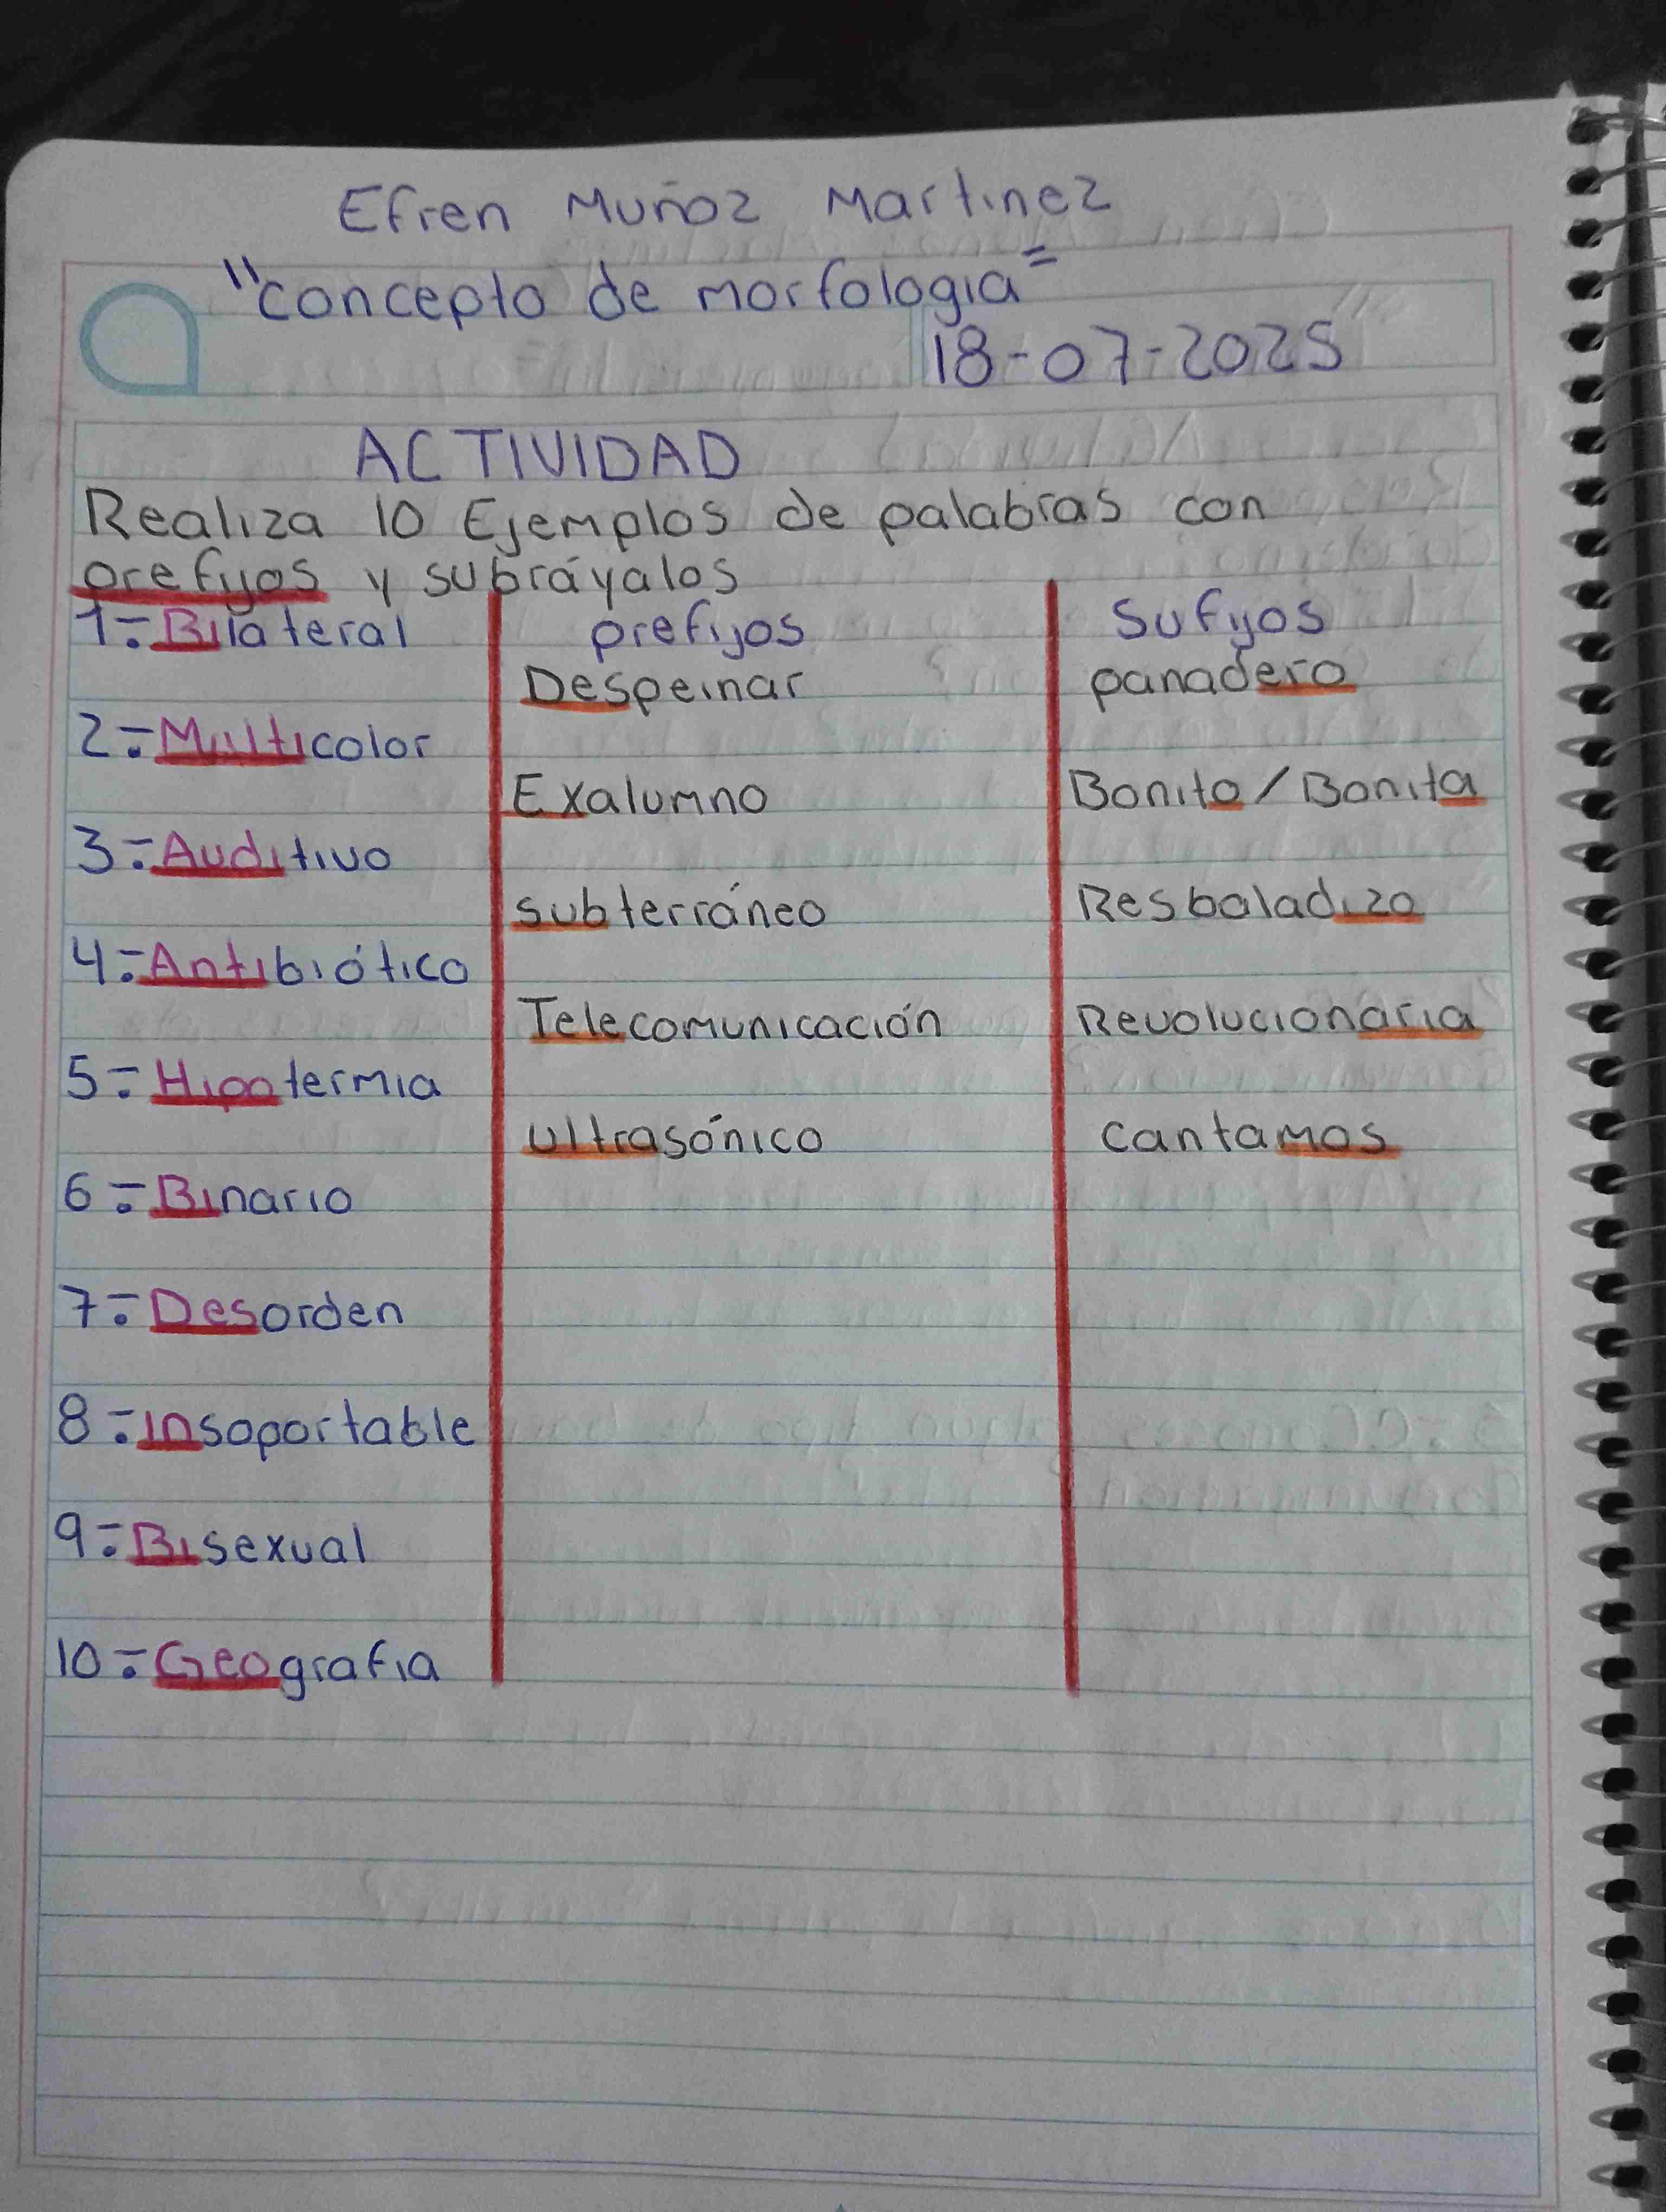 Efren Muñoz Martinez
"concepto de morfologia"
18-07-2025
ACTIVIDAD
Realiza 10 Ejemplos de palabras con
prefijos y subráyalos
1-. Bilateral
2-. Multicolor
3-. Auditivo
4-. Antibiótico
5-. Hipotermia
6-. Binario
7-. Desorden
8-. insoportable
9-. Bisexual
10-. Geografia
prefijos
Despeinar
Exalumno
subterráneo
Telecomunicación
ultrasónico
Sufijos
panadero
Bonito / Bonita
Resbaladizo
Revolucionaria
cantamos